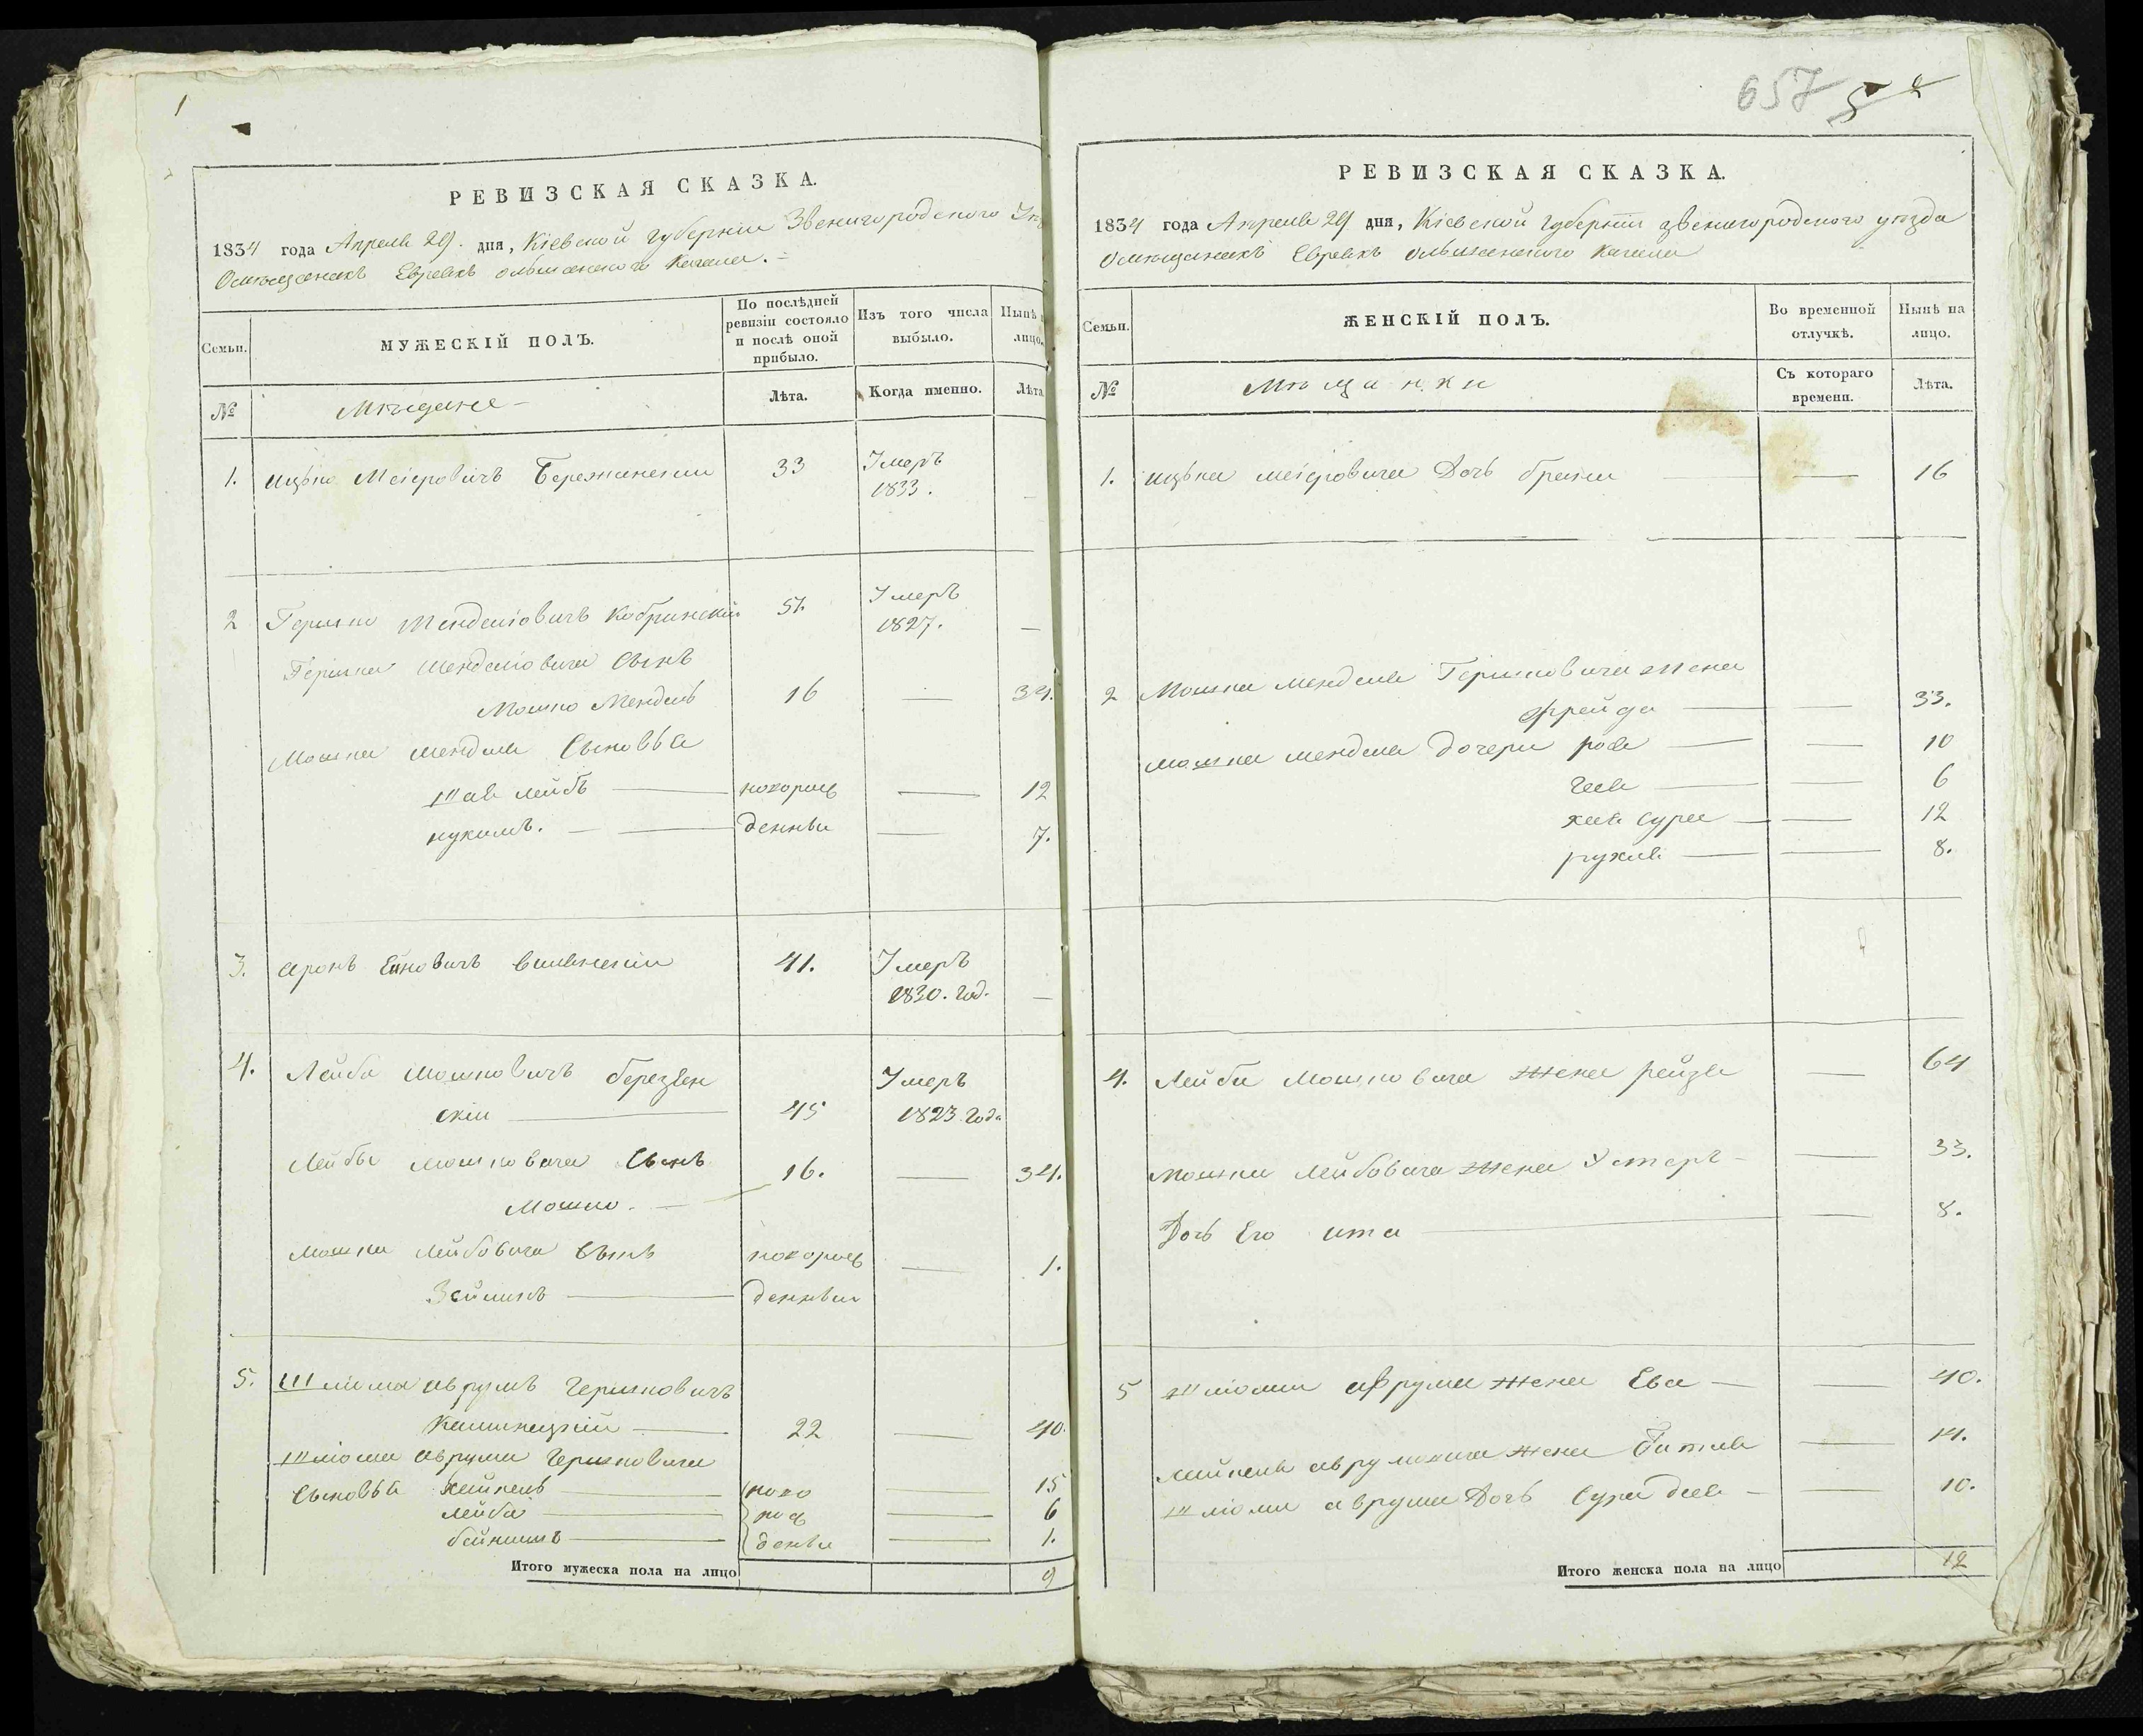 1
РЕВИЗСКАЯ СКАЗКА.
1834 года Апреля 29. дня, Кіевской губерніи Звенигородского
Омещанахъ Евреяхъ ольшанского Кагала.
Семьи.
МУЖЕСКІЙ ПОЛЪ.
По послѣдней ревизіи состояло и послѣ оной прибыло.
Изъ того числа выбыло.
Нынѣ
лицо.
№
Мѣщане
Лѣта.
Когда именно.
Лѣта
1. Ицько Меіеровичъ Бережанскіи 33 Умеръ
1833.
2 Гершко Менделіовичъ Кобринскій 51. Умеръ
1827. —
Гершка Менделіовича Сынъ
Мошко Мендель 16 — 34.
Мошка Менделя Сыновья
Шая Лейбъ — новорож — 12
нухимъ. — денныи — 7.
3. Аронъ виленскіи 41. Умеръ
1830. год. —
4. Лейба Мошковичъ березен
скіи — 45 Умеръ
1823 года
Лейбы Мошковича Сынъ 16. — 34.
Мошко. —
Мошка Лейбовича Сынъ новорож — 1.
Зейликъ — денныи
5. Шліома Аврумъ Гершковичъ
Каминецкіи — 22 — 40.
Шліома Аврума Гершковича
Сыновья Хаикель — ново — 15
лейба — рож — 6
бейнишъ — денныи — 1.
Итого мужеска пола на лицо 9
657
РЕВИЗСКАЯ СКАЗКА.
1834 года Апреля 29 дня, Кіевской губерніи звенигородского уѣзда
Омещанахъ Евреяхъ Ольшанского Кагала
Семьи.
ЖЕНСКІЙ ПОЛЪ.
Во временной отлучкѣ.
Нынѣ на лицо.
№
Мѣщанки
Съ котораго времени.
Лѣта.
1. Ицька меіеровича Дочь — — 16
2 Мошка Менделя Гершковича жена
фрейда — — 33.
Мошка Менделя дочери рося — — 10
— — 6
хая сура — — 12
рухля — — 8.
4. Лейбы Мошковича жена рейзя — 64
Мошка Лейбовича жена Эстеръ — — 33.
Дочь Его ита — — 8.
5 Шліомы аврума жена Ева — — 40.
жена — 14.
Шліомы аврума Дочь Сура — — 10.
Итого женска пола на лицо 12